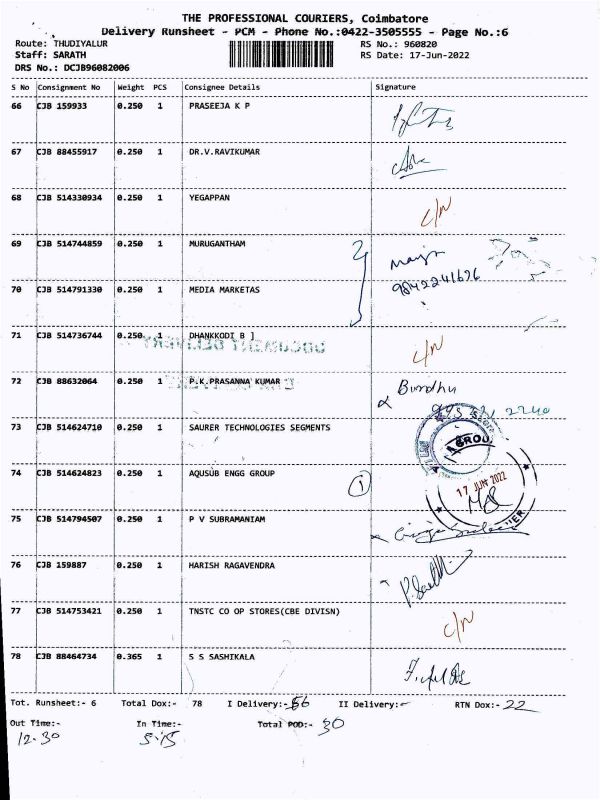 THE PROFESSIONAL COURIERS, Coimbatore
Delivery Runsheet - PCM - Phone No.:0422-3505555 - Page No.:6
Route: THUDIYALUR RS No.: 960820
Staff: SARATH RS Date: 17-Jun-2022
DRS No.: DCJB96082006
S No Consignment No Weight PCS Consignee Details Signature
66 CJB 159933 0.250 1 PRASEEJA K P
67 CJB 88455917 0.250 1 DR.V.RAVIKUMAR
68 CJB 514330934 0.250 1 YEGAPPAN C/N
69 CJB 514744859 0.250 1 MURUGANTHAM
9842241626
70 CJB 514791330 0.250 1 MEDIA MARKETAS
71 CJB 514736744 0.250 1 DHANKKODI B ] C/N
DOCUMENT DELIVERY
72 CJB 88632064 0.250 1 P.K.PRASANNA KUMAR Bindhu
73 CJB 514624710 0.250 1 SAURER TECHNOLOGIES SEGMENTS
GROU
74 CJB 514624823 0.250 1 AQUSUB ENGG GROUP 1
17 JUN 2022
75 CJB 514794507 0.250 1 P V SUBRAMANIAM
76 CJB 159887 0.250 1 HARISH RAGAVENDRA
77 CJB 514753421 0.250 1 TNSTC CO OP STORES(CBE DIVISN) C/N
78 CJB 88464734 0.365 1 S S SASHIKALA
Tot. Runsheet:- 6 Total Dox:- 78 I Delivery:- 56 II Delivery:- RTN Dox:- 22
Out Time:- In Time:- Total POD:- 30
12-30 5-15